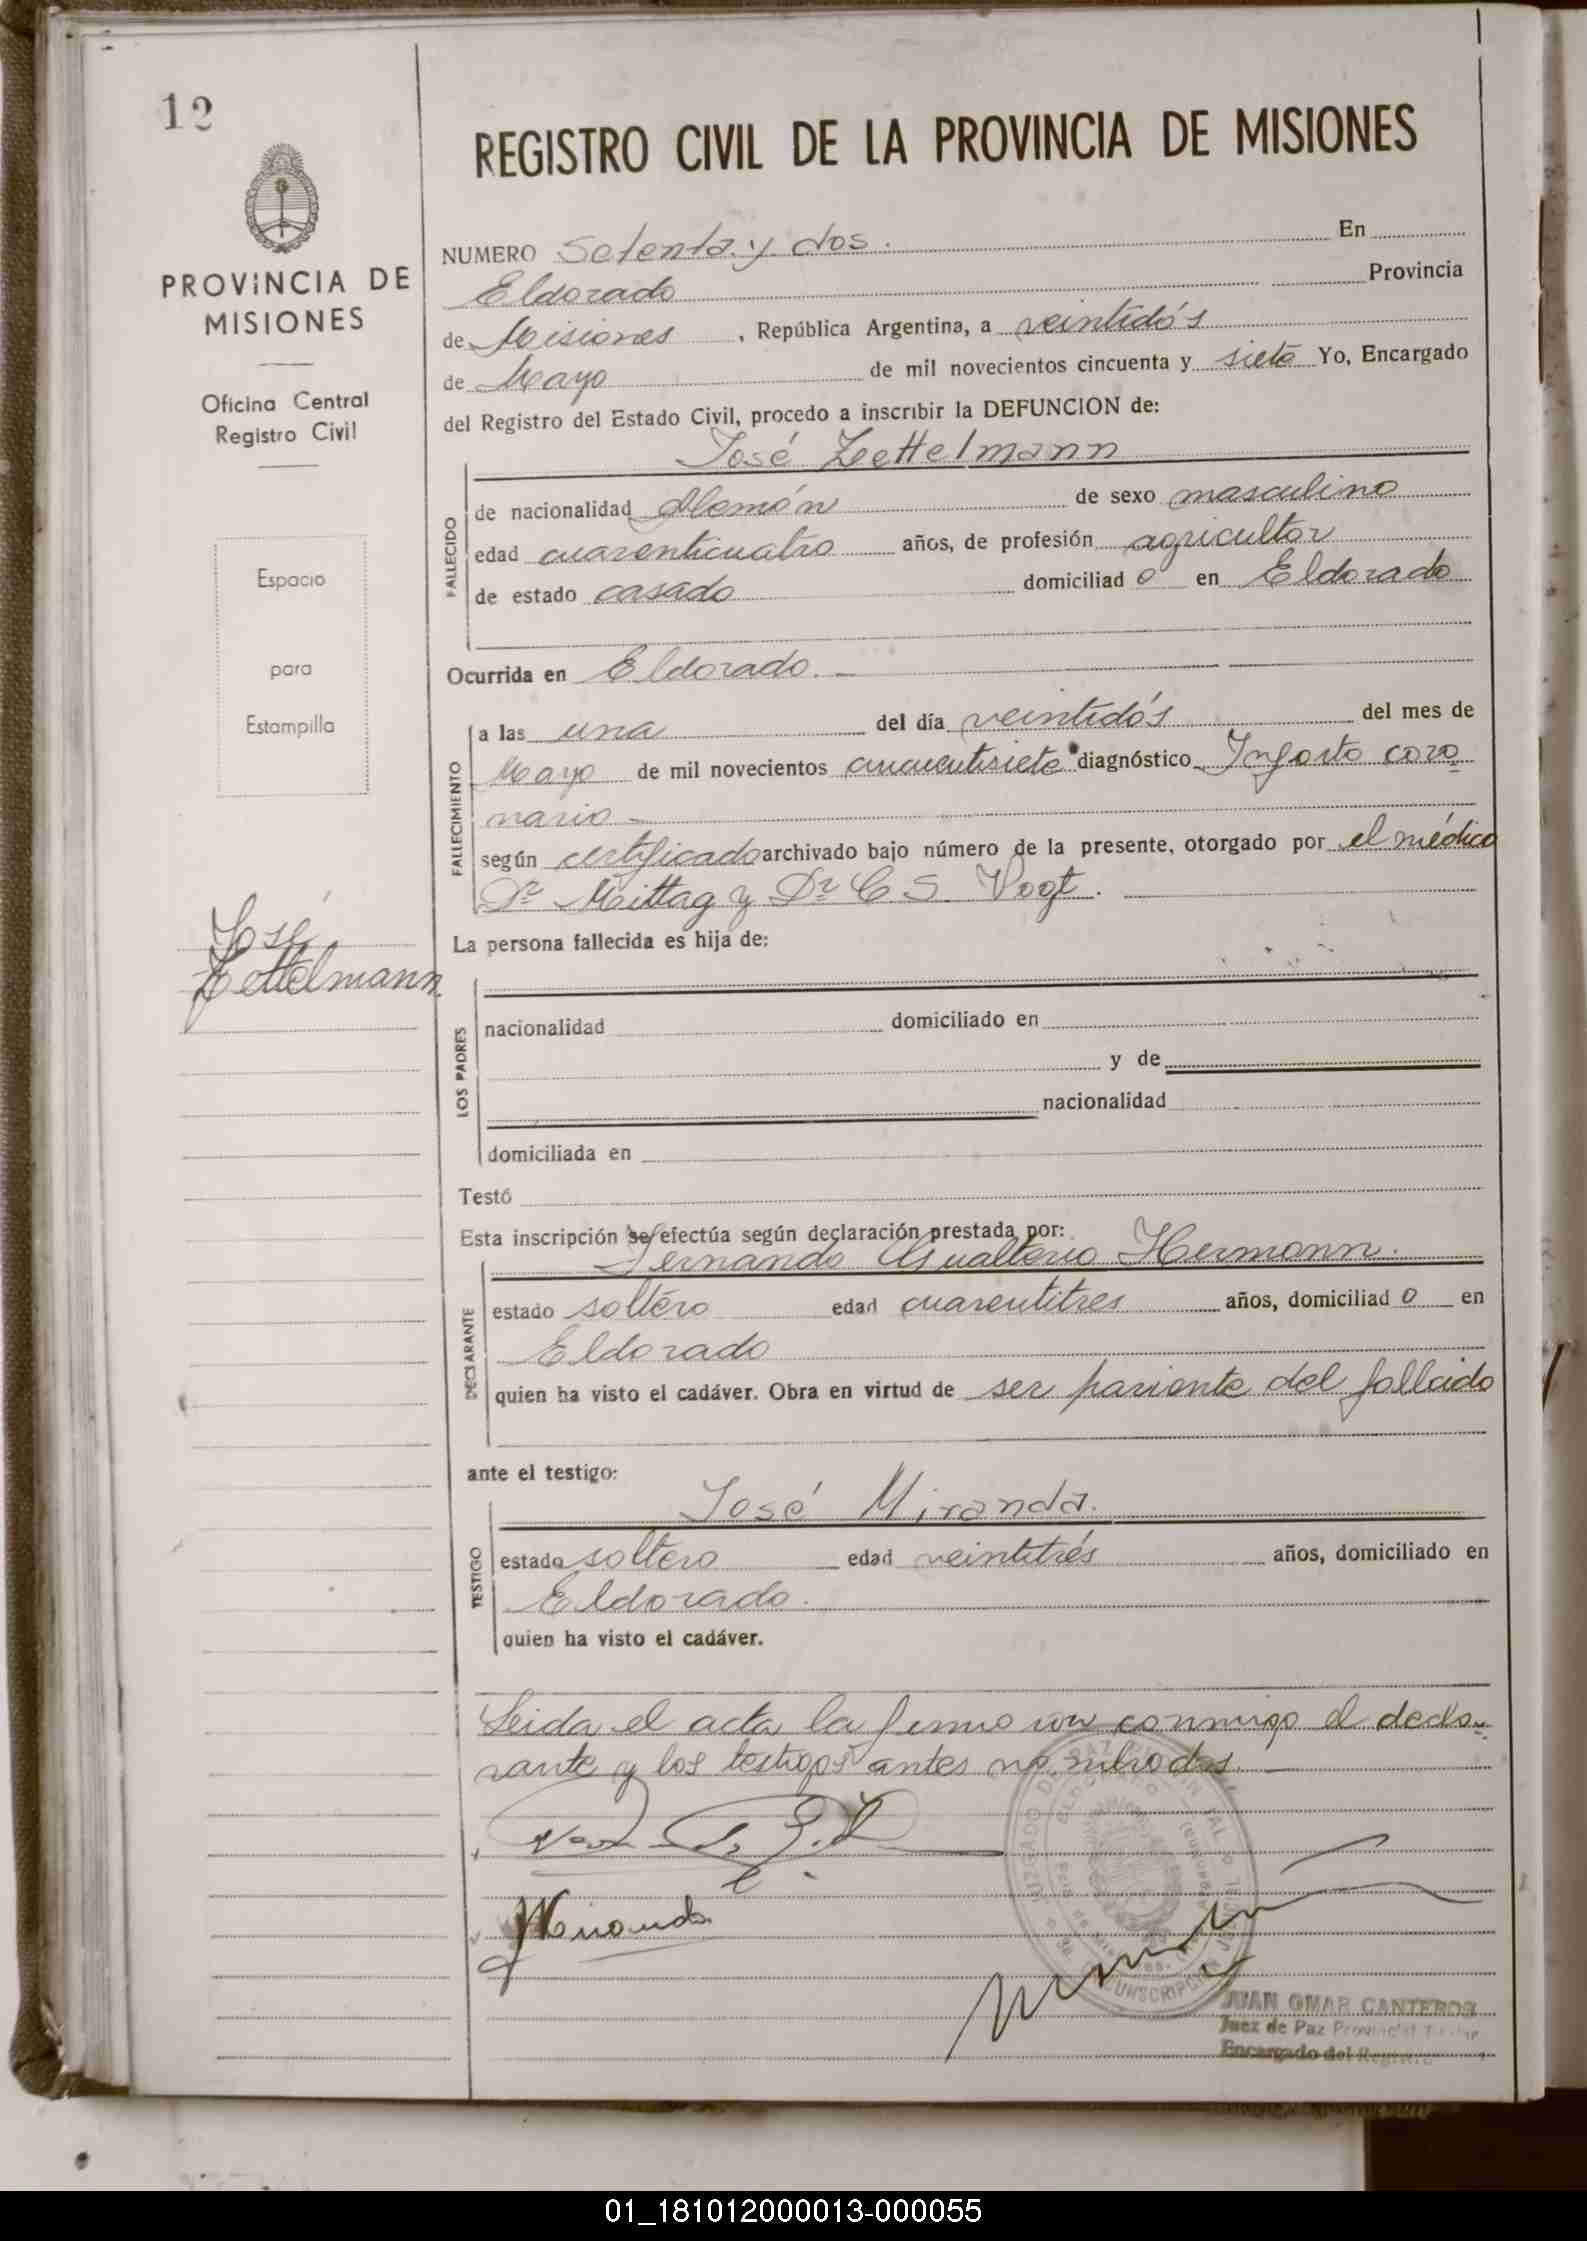 12
PROVINCIA DE
MISIONES
Oficina Central
Registro Civil
Espacio
para
Estampilla
José
Zettelmann
REGISTRO CIVIL DE LA PROVINCIA DE MISIONES
NUMERO Setenta y dos. En
Eldorado Provincia
de Misiones, República Argentina, a veintidós
de Mayo de mil novecientos cincuenta y siete Yo, Encargado
del Registro del Estado Civil, procedo a inscribir la DEFUNCION de:
José Zettelmann
FALLECIDO
de nacionalidad Alemán de sexo masculino
edad cuarenticuatro años, de profesión agricultor
de estado casado domiciliado en Eldorado
Ocurrida en Eldorado. —
FALLECIMIENTO
a las una del día veintidós del mes de
Mayo de mil novecientos cincuentisiete diagnóstico Infarto coro-
nario —
según certificado archivado bajo número de la presente, otorgado por el médico
Dr Mittag y Dr C S Vogt. —
La persona fallecida es hija de:
LOS PADRES
nacionalidad domiciliado en
y de
nacionalidad
domiciliada en
Testó
Esta inscripción se efectúa según declaración prestada por:
Fernando Gualterio Hermann.
DECLARANTE
estado soltéro edad cuarentitres años, domiciliado en
Eldorado
quien ha visto el cadáver. Obra en virtud de ser pariente del fallecido
ante el testigo:
José Miranda.
TESTIGO
estado soltero edad veintitrés años, domiciliado en
Eldorado.
quien ha visto el cadáver.
Leida el acta la firman conmigo el decla-
rante y los testigos antes nombrados. —
Miranda
JUAN OMAR CANTEROS
Juez de Paz Provincial Titular
Encargado del Registro
01_181012000013-000055